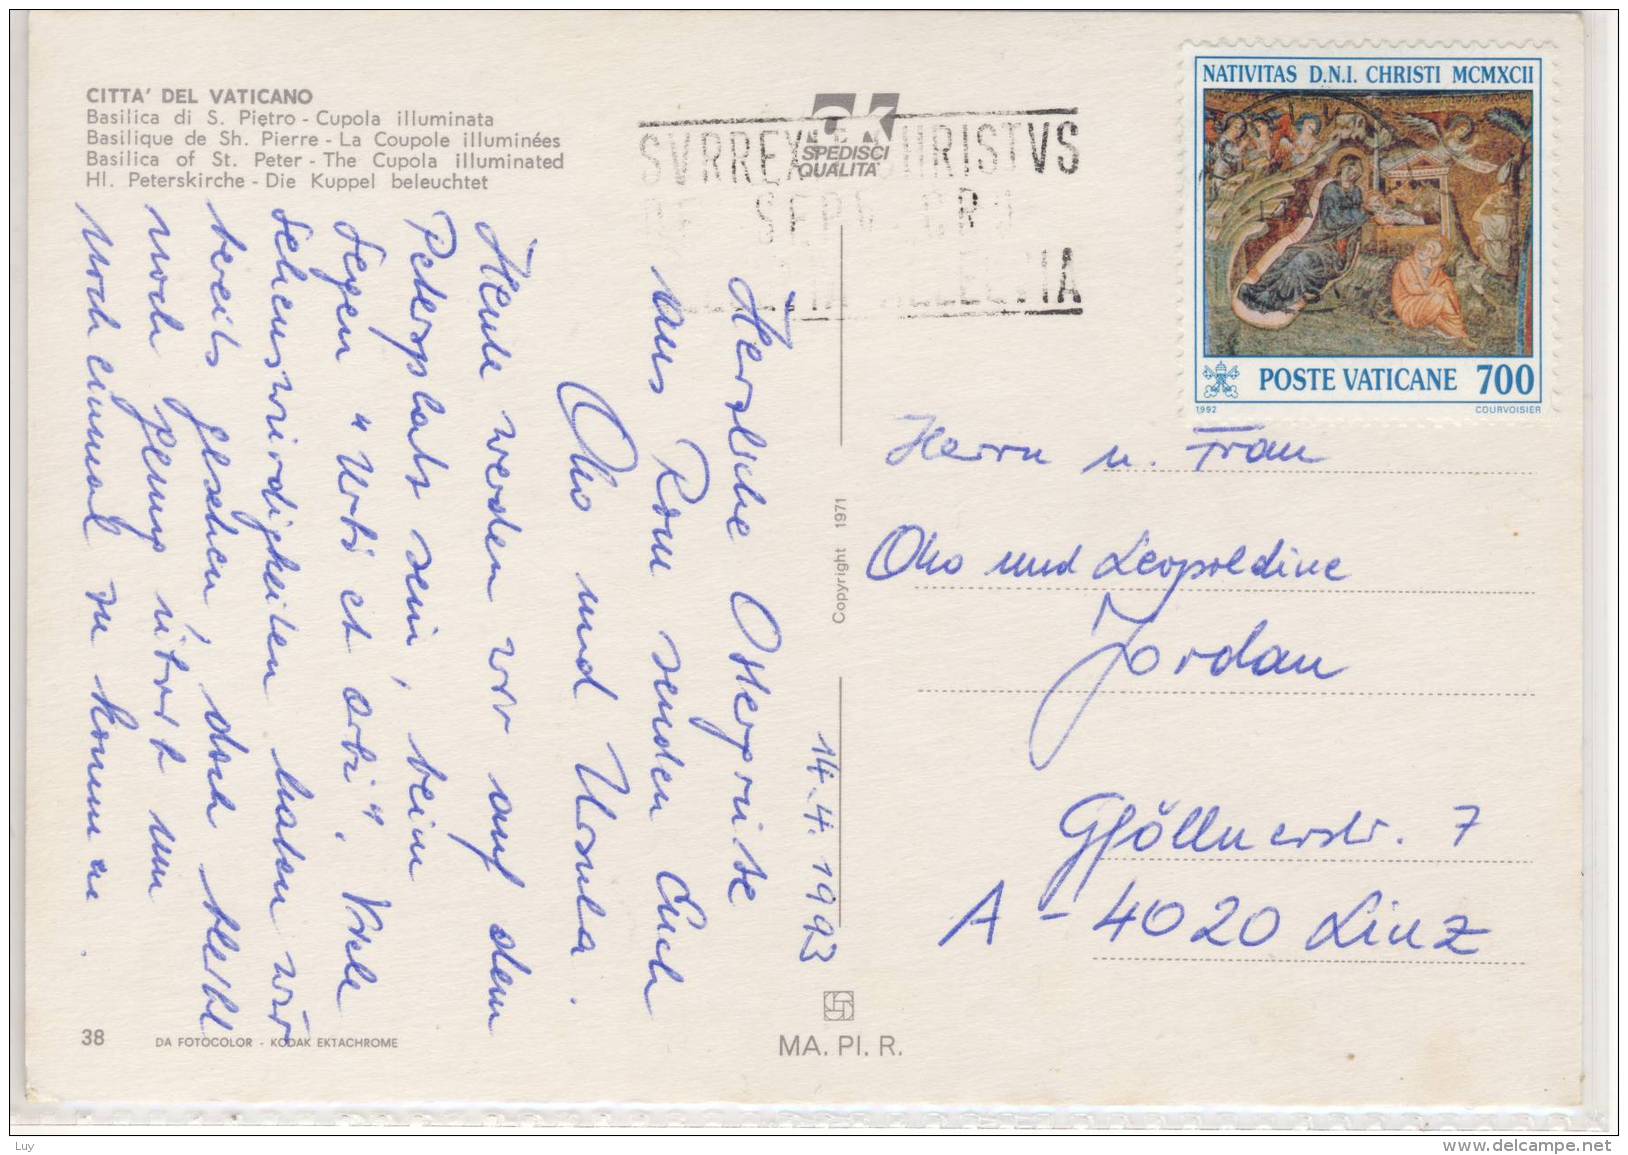 CITTA' DEL VATICANO
Basilica di S. Pietro - Cupola illuminata
Basilique de Sh. Pierre - La Coupole illuminées
Basilica of St. Peter - The Cupola illuminated
Hl. Peterskirche - Die Kuppel beleuchtet
SVRREX CHRISTVS
SPEDISCI
QUALITA'
NATIVITAS D.N.I. CHRISTI MCMXCII
POSTE VATICANE 700
1992 COURVOISIER
14.4.1993
Herzliche Ostergrüße
aus Rom senden Euch
Otto und Ursula.
Heute werden wir auf dem
Petersplatz sein, beim
Segen "Urbi et orbi". Viele
Sehenswürdigkeiten haben wir
bereits gesehen, doch bleibt
noch genug übrig um
noch einmal zu kommen.
Herrn u. Frau
Otto und Leopoldine
Jordan
Gföllnerstr. 7
A - 4020 Linz
Copyright 1971
38 DA FOTOCOLOR - KODAK EKTACHROME
MA. PI. R.
Luy
www.delcampe.net